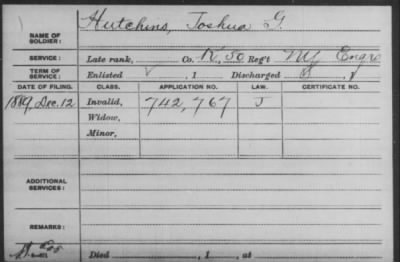 NAME OF SOLDIER: Hutchins, Joshua G.
SERVICE: Late rank, Co. K, 50 Reg't NY Engrs
TERM OF SERVICE: Enlisted , 1 Discharged , 1
DATE OF FILING. CLASS. APPLICATION NO. LAW. CERTIFICATE NO.
1889, Dec. 12 Invalid, 742,767 J
Widow,
Minor,
ADDITIONAL SERVICES:
REMARKS:
Died , 1 , at